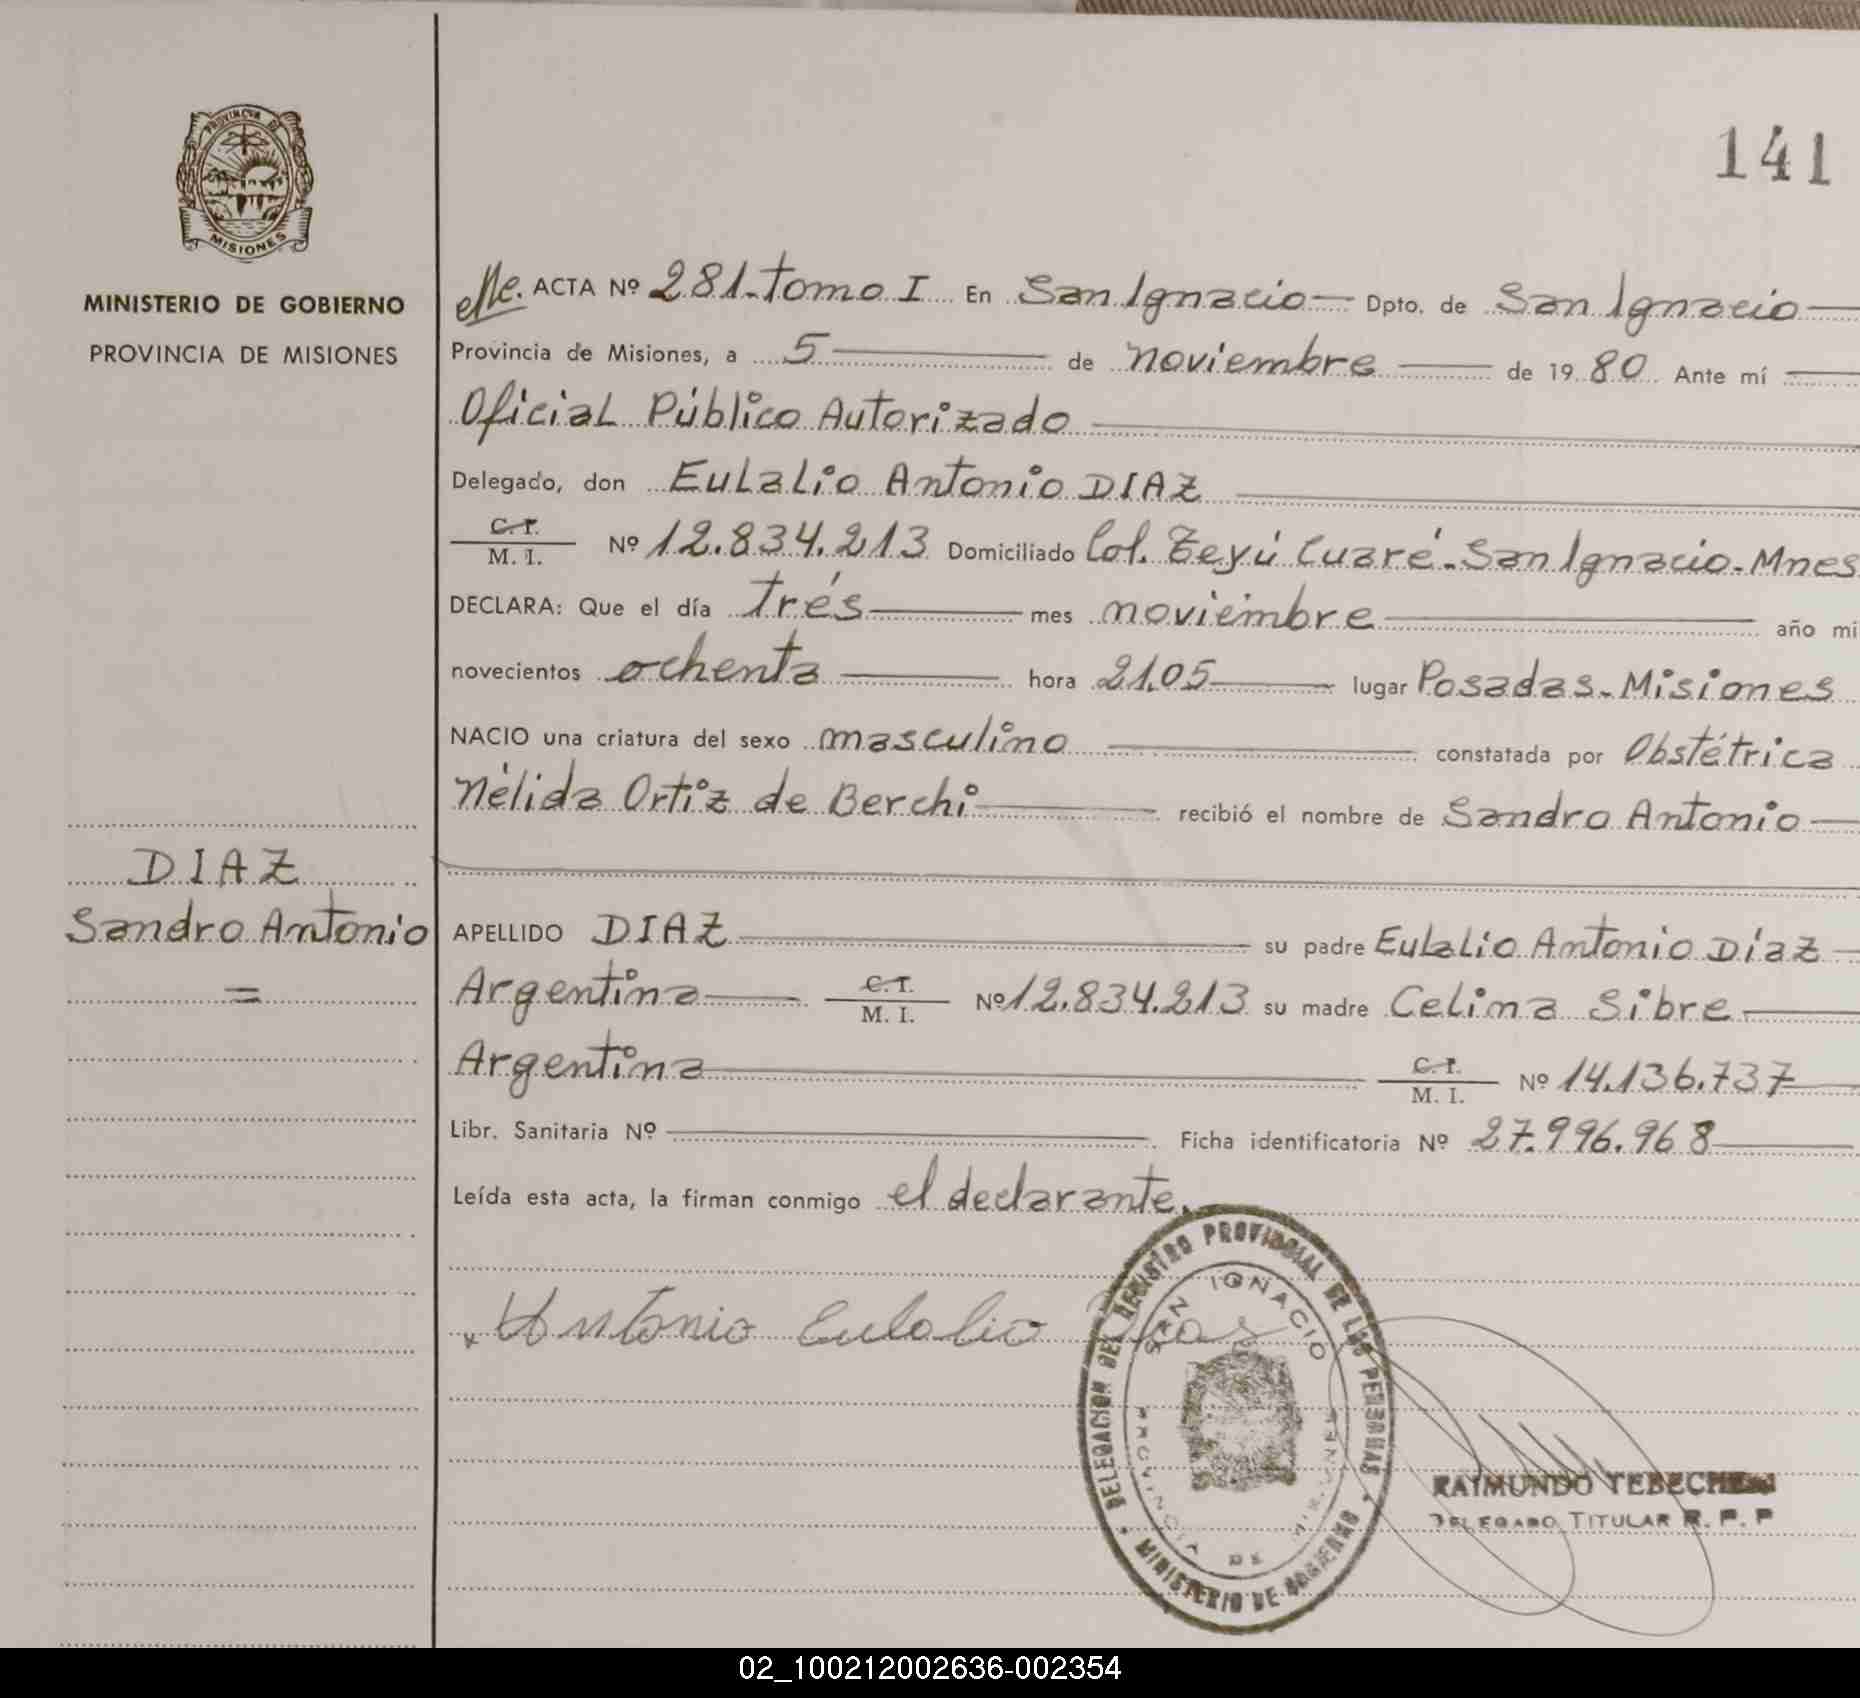 PROVINCIA DE
MISIONES
MINISTERIO DE GOBIERNO
PROVINCIA DE MISIONES
DIAZ
Sandro Antonio
=
141
ACTA Nº 281-Tomo I En San Ignacio Dpto. de San Ignacio
Provincia de Misiones, a 5 de noviembre de 1980 Ante mí
Oficial Público Autorizado
Delegado, don Eulalio Antonio DIAZ
C. I.
M. I. Nº 12.834.213 Domiciliado Col. Teyú Cuaré-San Ignacio-Mnes
DECLARA: Que el día trés mes noviembre año mi
novecientos ochenta hora 21,05 lugar Posadas-Misiones
NACIO una criatura del sexo masculino constatada por Obstétrica
Nélida Ortiz de Berchi recibió el nombre de Sandro Antonio
APELLIDO DIAZ su padre Eulalio Antonio Díaz
Argentina C. I. M. I. Nº 12.834.213 su madre Celima Sibre
Argentina C. I. M. I. Nº 14.136.737
Libr. Sanitaria Nº Ficha identificatoria Nº 27.996.968
Leída esta acta, la firman conmigo el declarante.
Antonio Eulalio Dias
DELEGACION DEL REGISTRO PROVINCIAL DE LAS PERSONAS
MINISTERIO DE GOBIERNO
SAN IGNACIO
PROVINCIA DE MISIONES
RAIMUNDO
DELEGADO TITULAR R. P. P
02_100212002636-002354